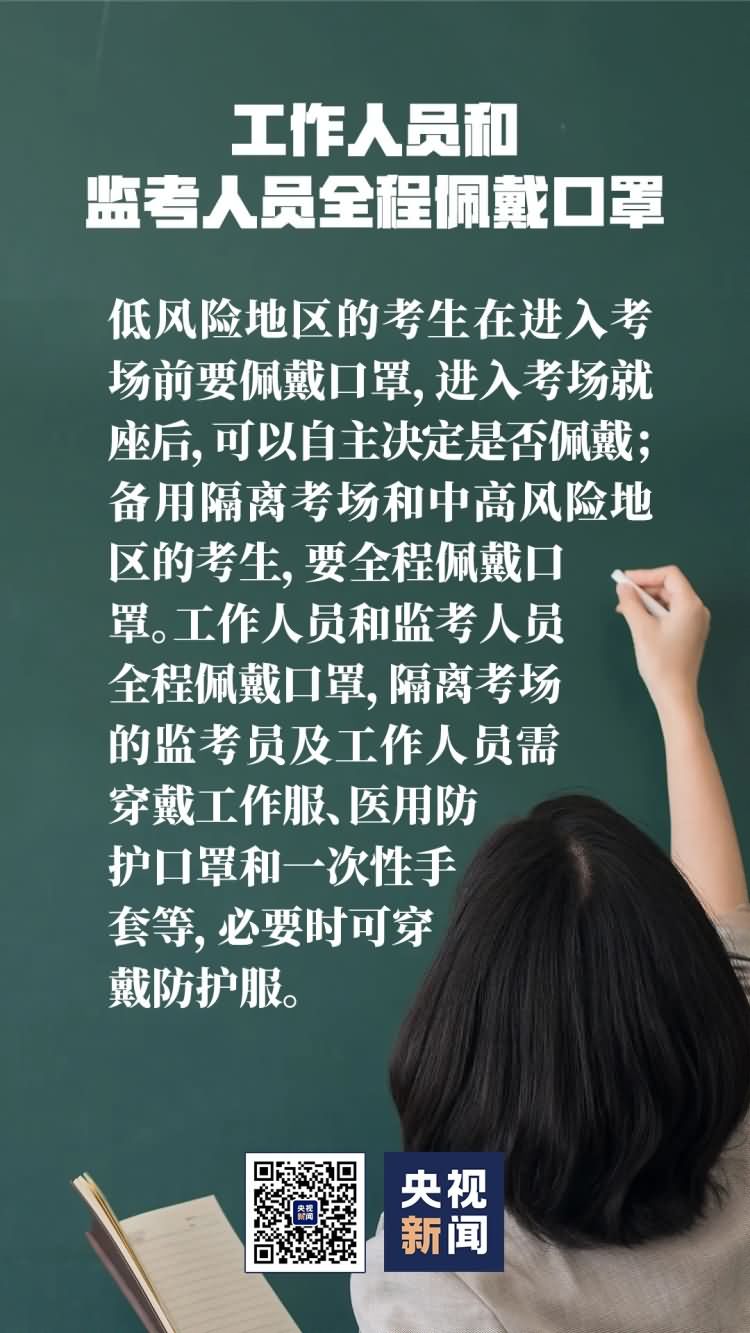 工作人员和
监考人员全程佩戴口罩
低风险地区的考生在进入考
场前要佩戴口罩，进入考场就
座后，可以自主决定是否佩戴；
备用隔离考场和中高风险地
区的考生，要全程佩戴口
罩。工作人员和监考人员
全程佩戴口罩，隔离考场
的监考员及工作人员需
穿戴工作服、医用防
护口罩和一次性手
套等，必要时可穿
戴防护服。
央视
新闻
央视
新闻